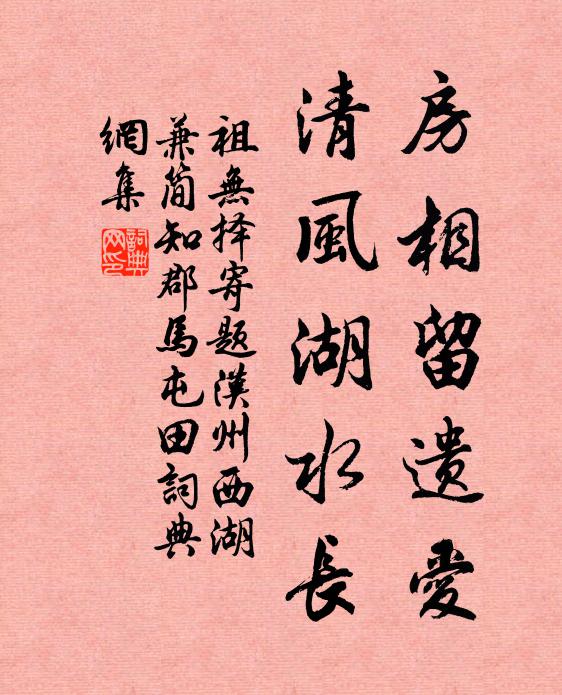 房相留遗愛
清風湖水長
祖無择寄题漢州西湖
兼简知郡馬屯田詞典
網集
詞典網印